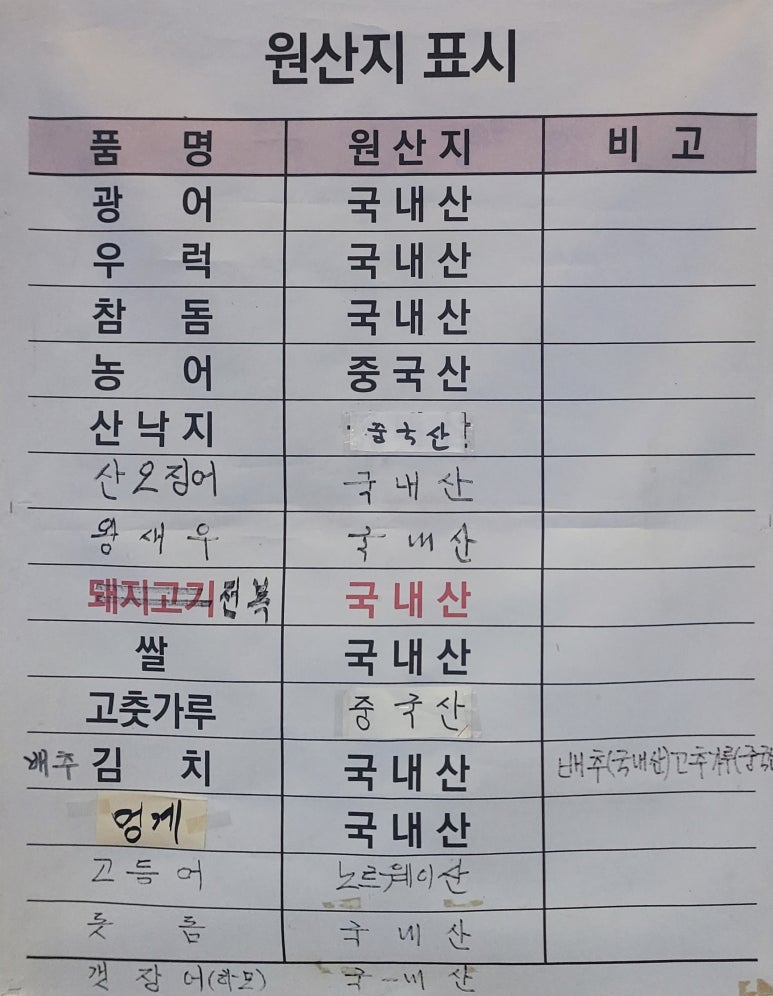 원산지 표시
품 명 원산지 비 고
광 어 국내산
우 럭 국내산
참 돔 국내산
농 어 중국산
산낙지 중국산
산오징어 국내산
왕새우 국내산
돼지고기전복 국내산
쌀 국내산
고춧가루 중국산
배추김 치 국내산 배추(국내산)고추가류(중국
멍게 국내산
고등어 노르웨이산
돗 돔 국내산
갯장어(하모) 국내산